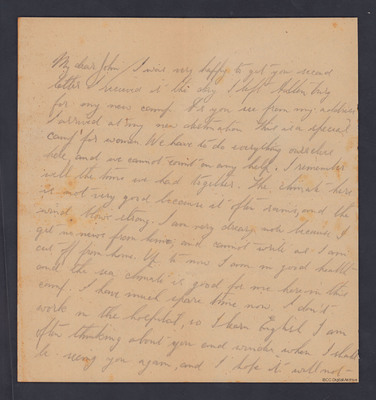 My dear John I was very happy to get you second
letter I received it the day I left
for my new camp. As you see from my address
I arrived at my new destination that is a special
camp for women. We have to do everything ourselves
here, and we cannot count on any help. I remember
well the time we had together. The climate here
is not very good because it often rains, and the
wind blows strong. I am very dreary now because I
get no news from home, and cannot write as I am
cut off from home. Up to now I am in good health
and the sea climate is good for me here in this
camp. I have much spare time now. I don't
work in the hospital, so I learn English. I am
often thinking about you and wonder when I shall
be seeing you again, and I hope it will not